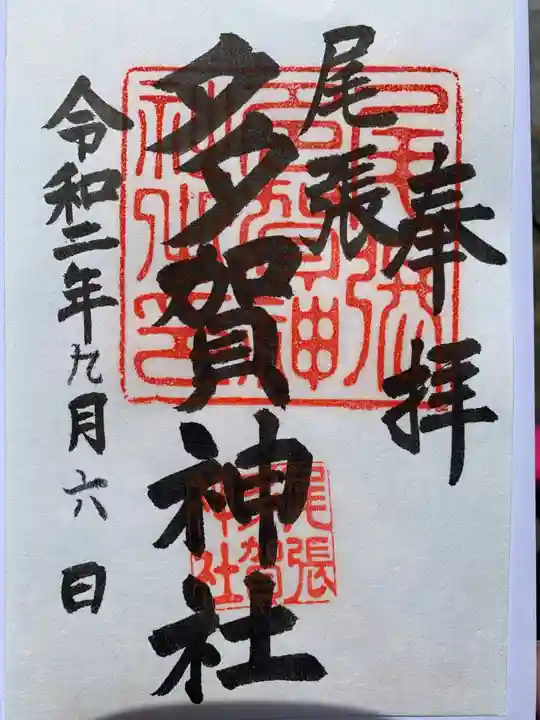 奉拝
尾張
多賀神社
令和二年九月六日
尾張
多賀
神社